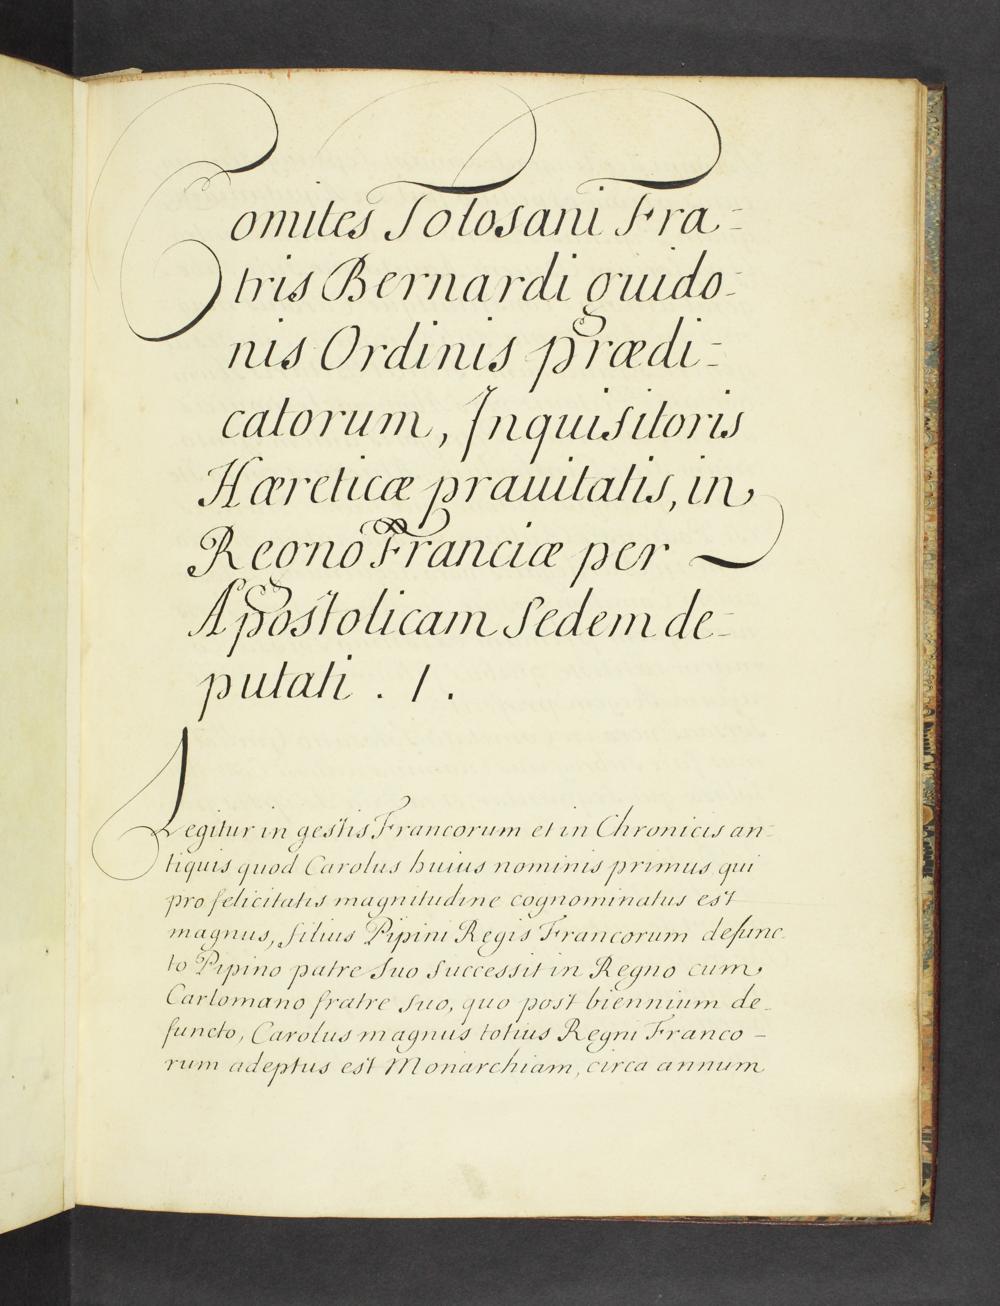 Comites Tolosani Fra-
tris Bernardi guido-
nis Ordinis prædi-
catorum, Inquisitoris
Hæreticæ prauitatis, in
Regno Franciæ per
Apostolicam Sedem de-
putati . 1 .
Legitur in gestis Francorum et in Chronicis an-
tiquis quod Carolus huius nominis primus, qui
pro felicitatis magnitudine cognominatus est
magnus, filius Pipini Regis Francorum defunc-
to Pipino patre suo successit in Regno cum
Carlomano fratre suo, quo post biennium de-
functo, Carolus magnus totius Regni Franco-
rum adeptus est Monarchiam, circa annum